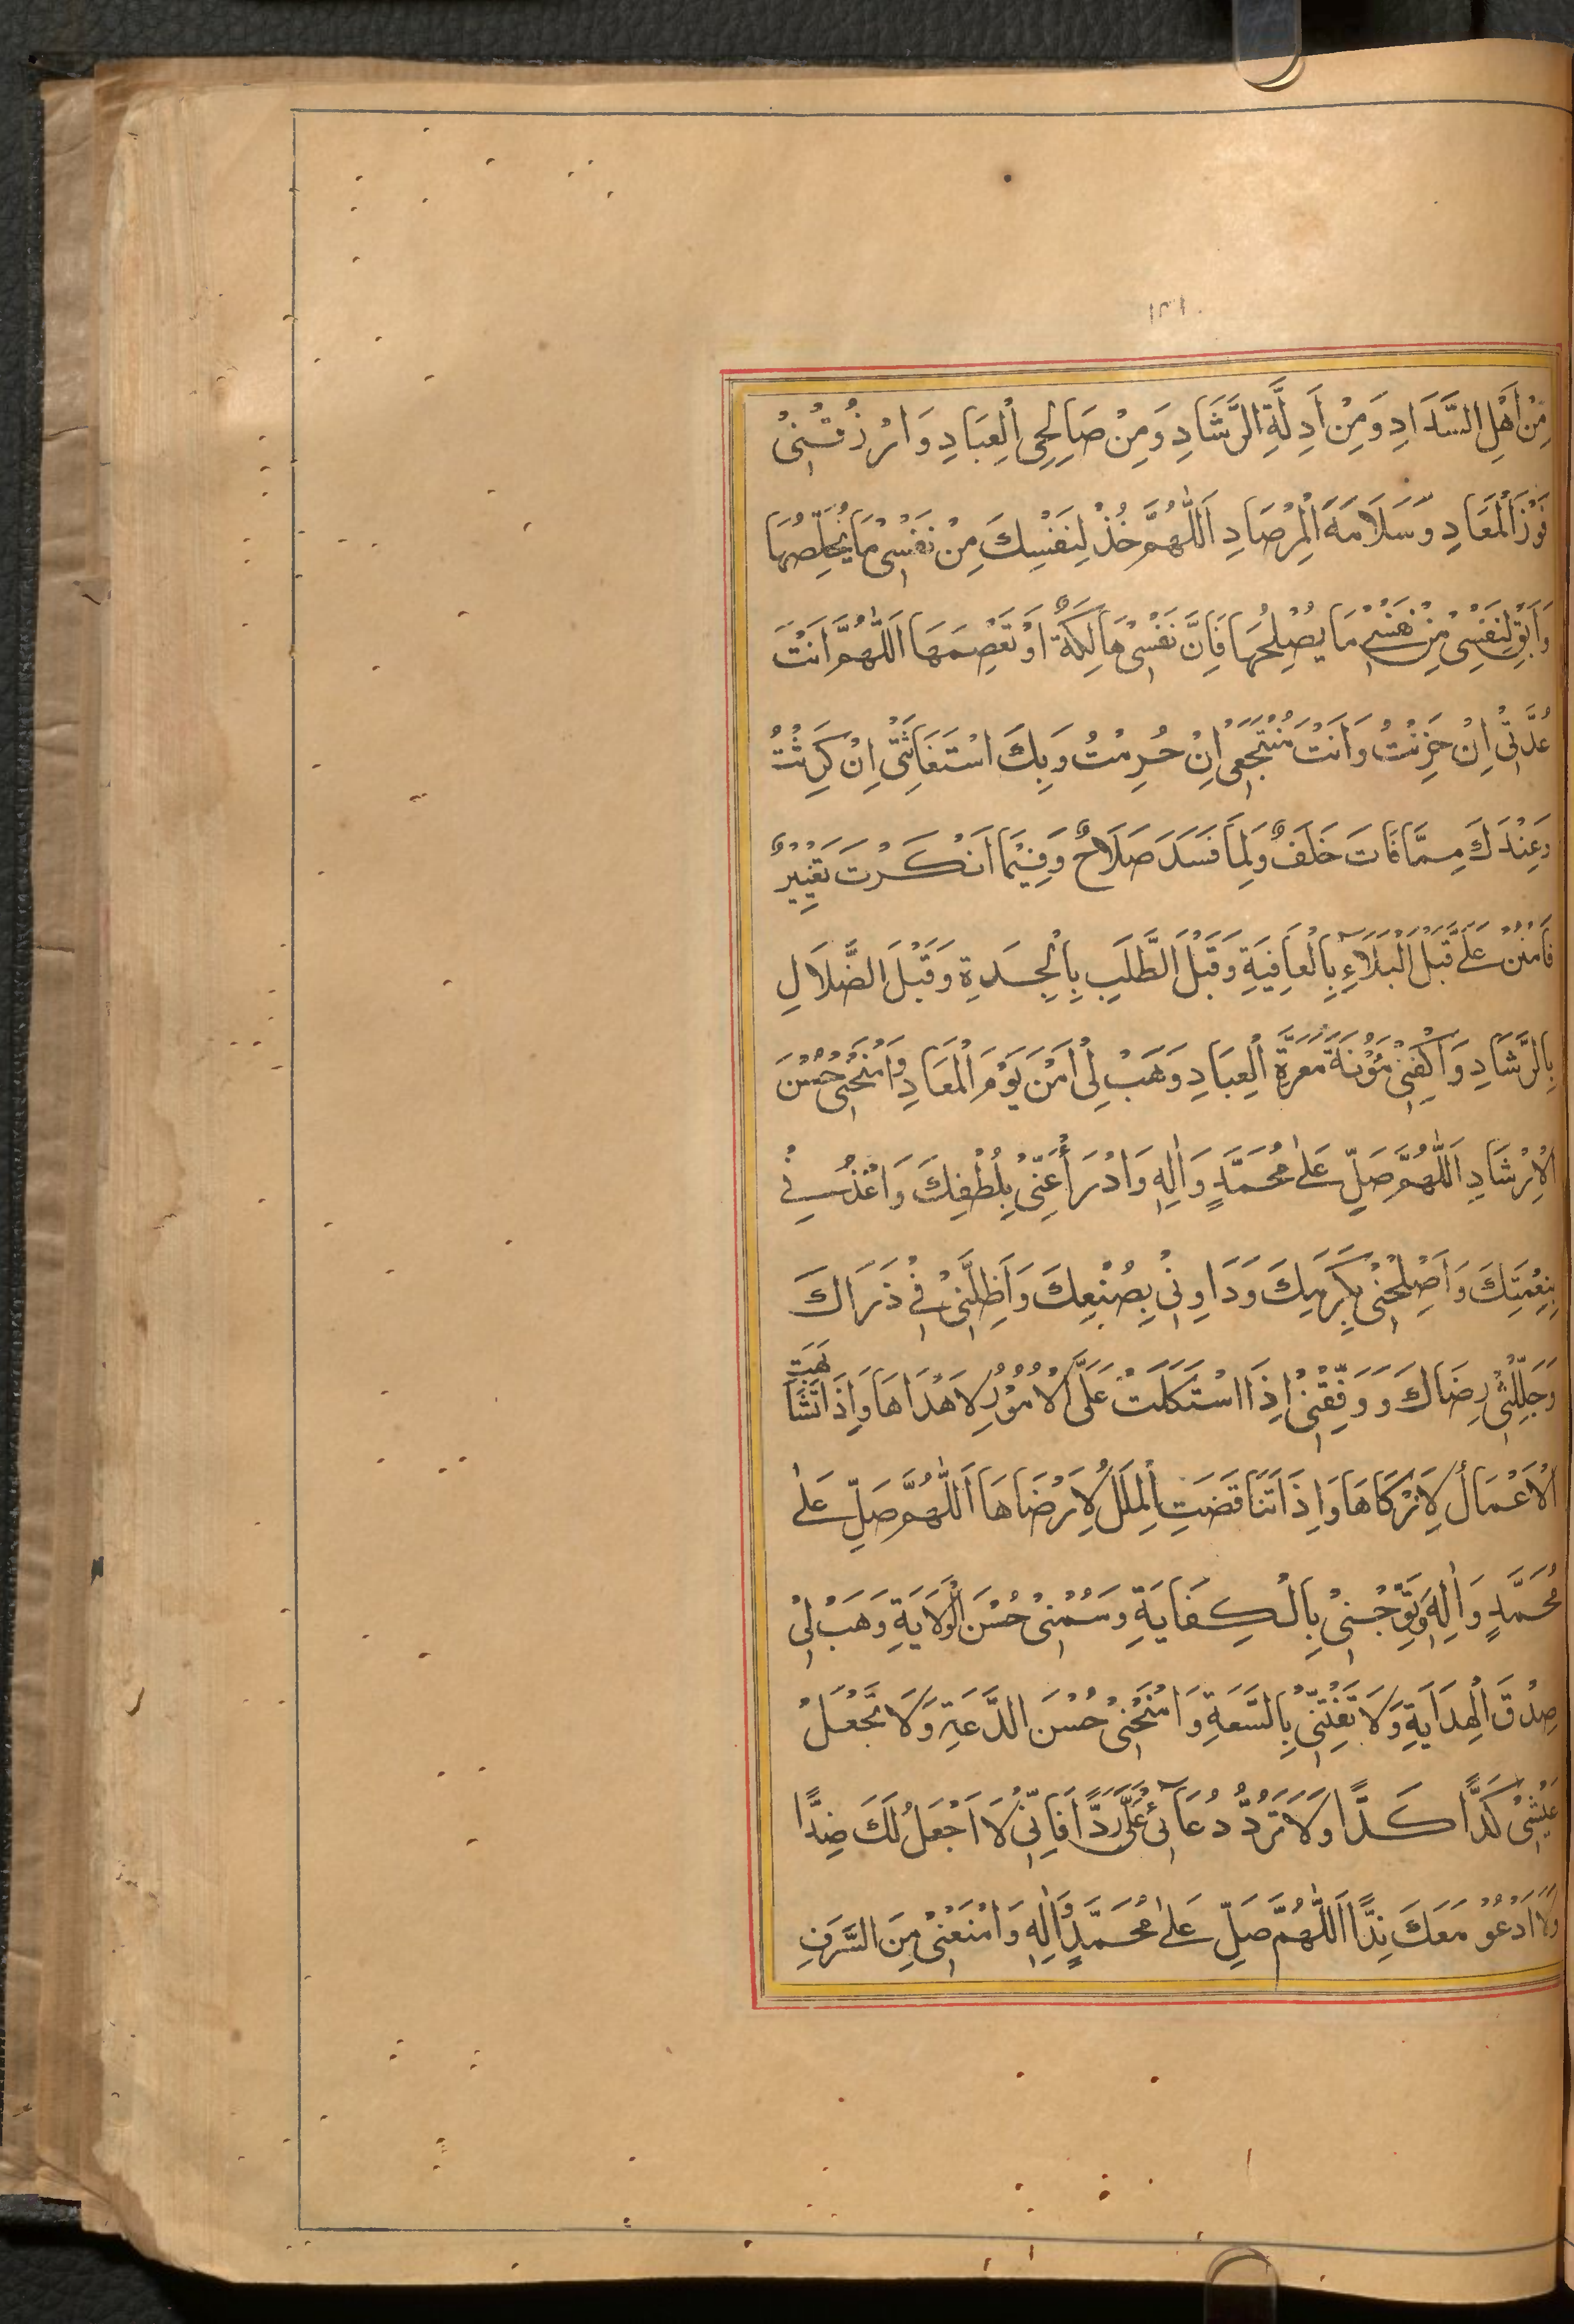 مِنْ اَهْلِ السَّدَادِ وَمِنْ اَدِلَّةِ الرَّشَادِ وَمِنْ صَالِحِى الْعِبَادِ وَارْزُقْنِىْ
فَوْزَ الْمَعَادِ وَسَلَامَةَ الْمِرْصَادِ اَللّٰهُمَّ خُذْ لِنَفْسِكَ مِنْ نَفْسِىْ مَا يُخَلِّصُهَا
وَاَبْقِ لِنَفْسِىْ مِنْ نَفْسِىْ مَا يُصْلِحُهَا فَاِنَّ نَفْسِىْ هَالِكَةٌ اَوْ تَعْصِمَهَا اَللّٰهُمَّ اَنْتَ
عُدَّتِىْ اِنْ حَزِنْتُ وَاَنْتَ مُنْتَجَعِىْ اِنْ حُرِمْتُ وَبِكَ اسْتَغَاثَتِىْ اِنْ كَرِثْتُ
وَعِنْدَكَ مِمَّا فَاتَ خَلَفٌ وَلِمَا فَسَدَ صَلَاحٌ وَفِيْمَا اَنْكَرْتَ تَغْيِيْرٌ
فَامْنُنْ عَلَىَّ قَبْلَ الْبَلَآءِ بِالْعَافِيَةِ وَقَبْلَ الطَّلَبِ بِالْجِدَةِ وَقَبْلَ الضَّلَالِ
بِالرَّشَادِ وَاكْفِنِىْ مَؤُنَةَ مَعَرَّةِ الْعِبَادِ وَهَبْ لِىْ اَمْنَ يَوْمِ الْمَعَادِ وَامْنَحْنِىْ حُسْنَ
الْاِرْشَادِ اَللّٰهُمَّ صَلِّ عَلٰى مُحَمَّدٍ وَاٰلِهٖ وَادْرَأْ عَنِّىْ بِلُطْفِكَ وَاغْذُنِىْ
بِنِعْمَتِكَ وَاَصْلِحْنِىْ بِكَرَمِكَ وَدَاوِنِىْ بِصُنْعِكَ وَاَظِلَّنِىْ فِىْ ذَرَاكَ
وَجَلِّلْنِىْ رِضَاكَ وَوَفِّقْنِىْ اِذَا اشْتَكَلَتْ عَلَىَّ الْاُمُوْرُ لِاَهْدَاهَا وَاِذَا تَشَابَهَتِ
الْاَعْمَالُ لِاَزْكَاهَا وَاِذَا تَنَاقَضَتِ الْمِلَلُ لِاَرْضَاهَا اَللّٰهُمَّ صَلِّ عَلٰى
مُحَمَّدٍ وَاٰلِهٖ وَتَوِّجْنِىْ بِالْكِفَايَةِ وَسُمْنِىْ حُسْنَ الْوَلَايَةِ وَهَبْ لِىْ
صِدْقَ الْهِدَايَةِ وَلَا تَفْتِنِّىْ بِالسَّعَةِ وَامْنَحْنِىْ حُسْنَ الدَّعَةِ وَلَا تَجْعَلْ
عَيْشِىْ كَدًّا كَدًّا وَلَا تَرُدَّ دُعَآئِىْ عَلَىَّ رَدًّا فَاِنِّىْ لَا اَجْعَلُ لَكَ ضِدًّا
وَلَا اَدْعُوْ مَعَكَ نِدًّا اَللّٰهُمَّ صَلِّ عَلٰى مُحَمَّدٍ وَاٰلِهٖ وَامْنَعْنِىْ مِنَ السَّرَفِ